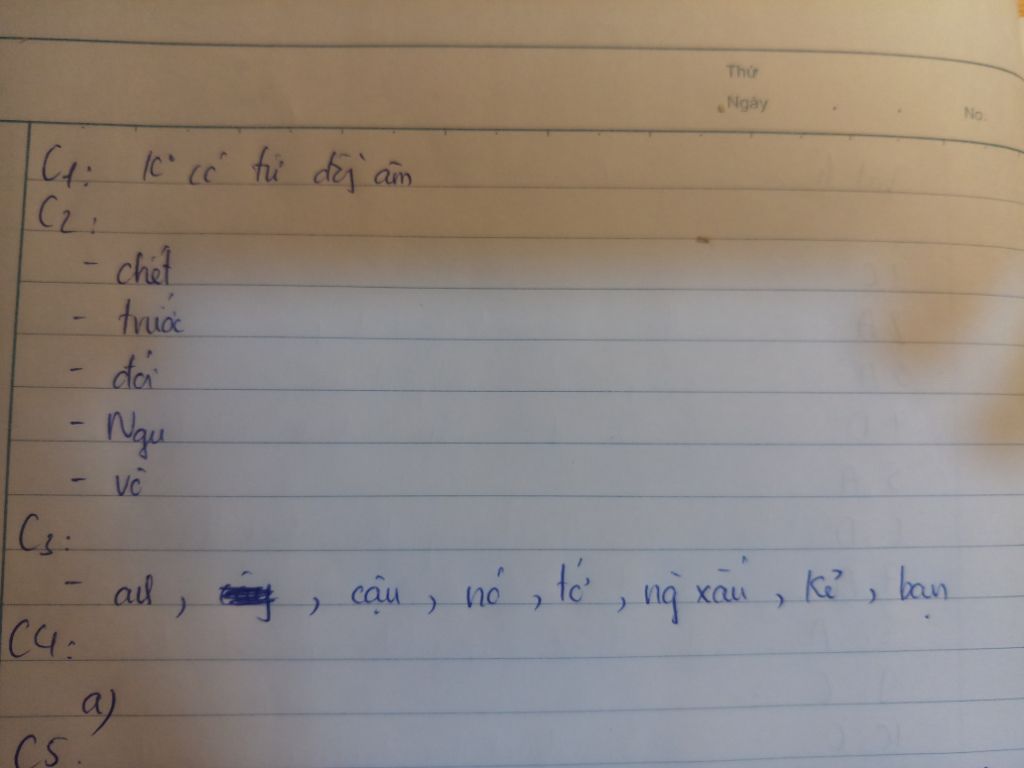 Thứ
Ngày
No.
C1: K° có từ đồg âm
C2:
- chết
- trước
- đói
- Ngu
- vô
C3:
- , cậu, nó, tớ, ng̀ xấu, kẻ, bạn
C4:
a)
C5.